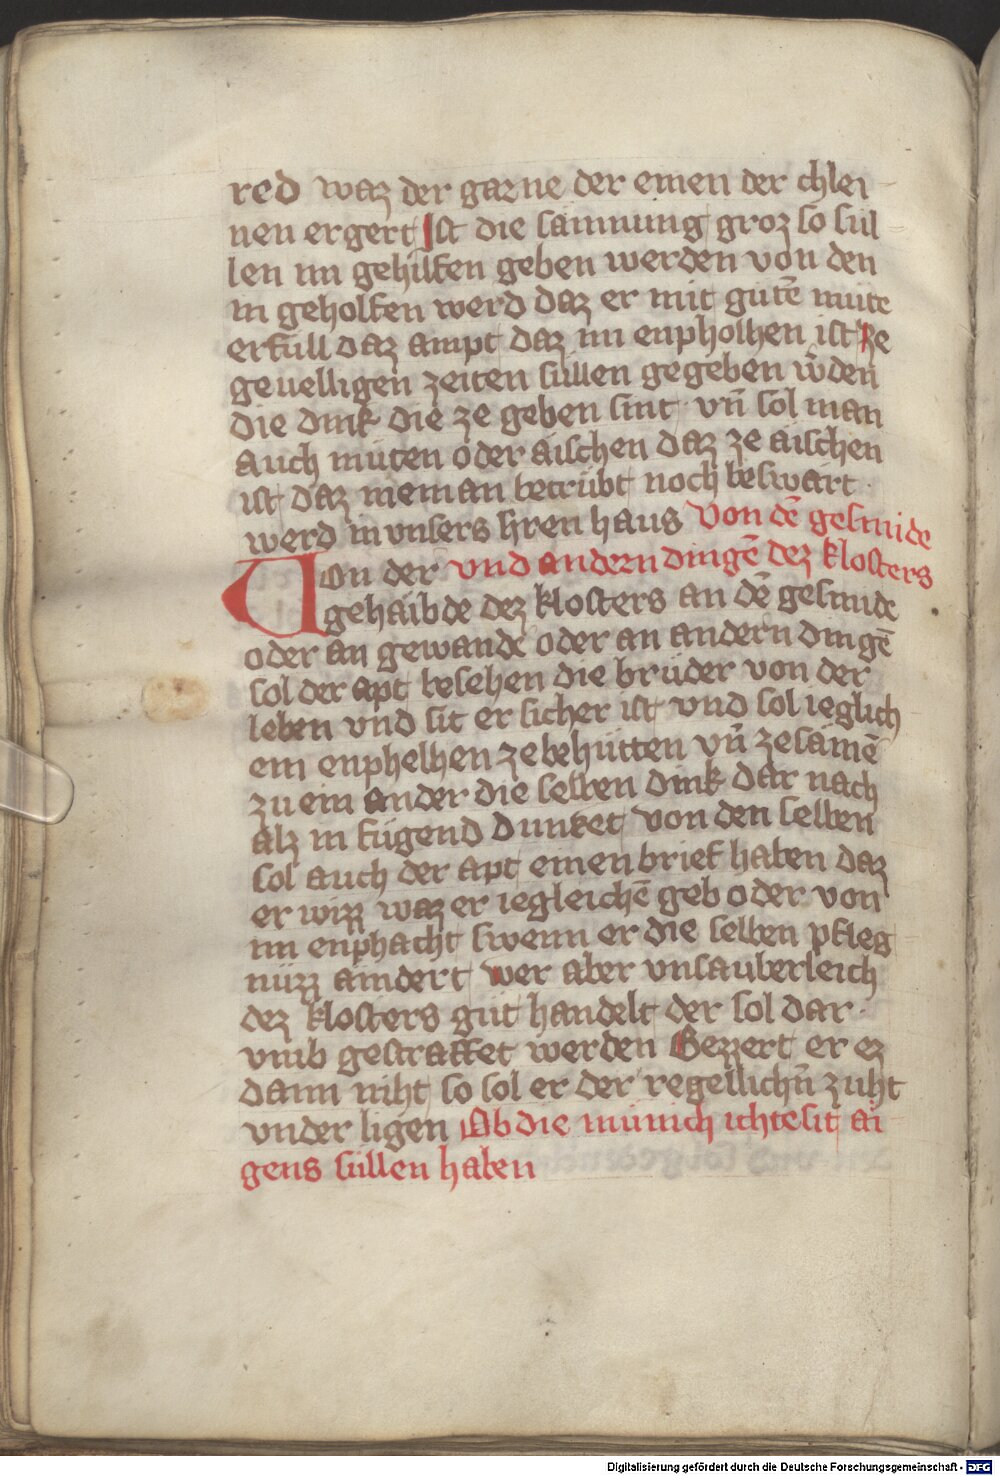 red waz der garne der einen der chlei
nen ergert Ist die sammung groz so sul
len im gehilfen geben werden von den
im geholfen werd daz er mit gutē mute
erfull daz ampt daz im enpholhen ist Ze
geuelligen zeiten sullen gegeben w̄den
die dink die ze geben sint vn̄ sol man
auch muten oder aischen daz ze aischen
ist daz nieman betrubt noch beswart
werd in vnsers hren haus Von dē gesmide
vnd andern dingē dez klosters
Von der
gehaibde dez klosters an dē gesmide
oder an gewande oder an andern dingē
sol der apt besehen die bruder von der
leben vnd sit er sicher ist vnd sol ieglich
em enphelhen ze behutten vn̄ ze samē
zu ein ander die selben dink dar nach
alz in fugend dunket von den selben
sol auch der apt einen brief haben daz
er wizz waz er iegleichē geb oder von
im enphacht swenn er die selben pfleg
nuzz aindert wer aber vnsauberleich
dez klosters gut handelt der sol dar
vmb gestraffet werden Bezzert er ez
dann niht so sol er der regellichn̄ zuht
vnder ligen Ob die munich ichtesit ai
gens sullen haben
Digitalisierung gefördert durch die Deutsche Forschungsgemeinschaft - DFG